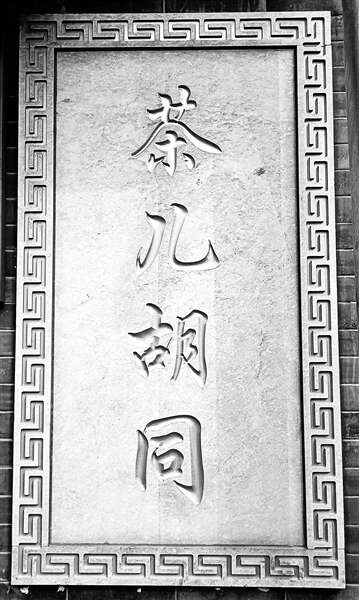 茶儿胡同